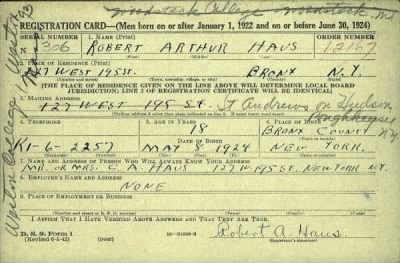 Woodstock College Woodstock Md
REGISTRATION CARD—(Men born on or after January 1, 1922 and on or before June 30, 1924)
SERIAL NUMBER 1. NAME (Print) ORDER NUMBER
N 306 ROBERT ARTHUR HAUS 12167
(First) (Middle) (Last)
2. PLACE OF RESIDENCE (Print)
127 WEST 195 ST. BRONX N.Y.
(Number and street) (Town, township, village, or city) (County) (State)
[THE PLACE OF RESIDENCE GIVEN ON THE LINE ABOVE WILL DETERMINE LOCAL BOARD
JURISDICTION; LINE 2 OF REGISTRATION CERTIFICATE WILL BE IDENTICAL]
3. MAILING ADDRESS
127 WEST 195 ST. St Andrews on Hudson
Poughkeepsie N.Y.
4. TELEPHONE 5. AGE IN YEARS 6. PLACE OF BIRTH
18 BRONX COUNTY
DATE OF BIRTH
KI-6-2257 MAY 8 1924 NEW YORK
7. NAME AND ADDRESS OF PERSON WHO WILL ALWAYS KNOW YOUR ADDRESS
MR. OR MRS. C. A. HAUS 127 W. 195 ST. NEW YORK N.Y.
8. EMPLOYER'S NAME AND ADDRESS
NONE
9. PLACE OF EMPLOYMENT OR BUSINESS
(Number and street or R. F. D. number) (Town) (County) (State)
I AFFIRM THAT I HAVE VERIFIED ABOVE ANSWERS AND THAT THEY ARE TRUE.
D. S. S. Form 1
(Revised 6-1-42) Robert A. Haus
(Registrant's signature)